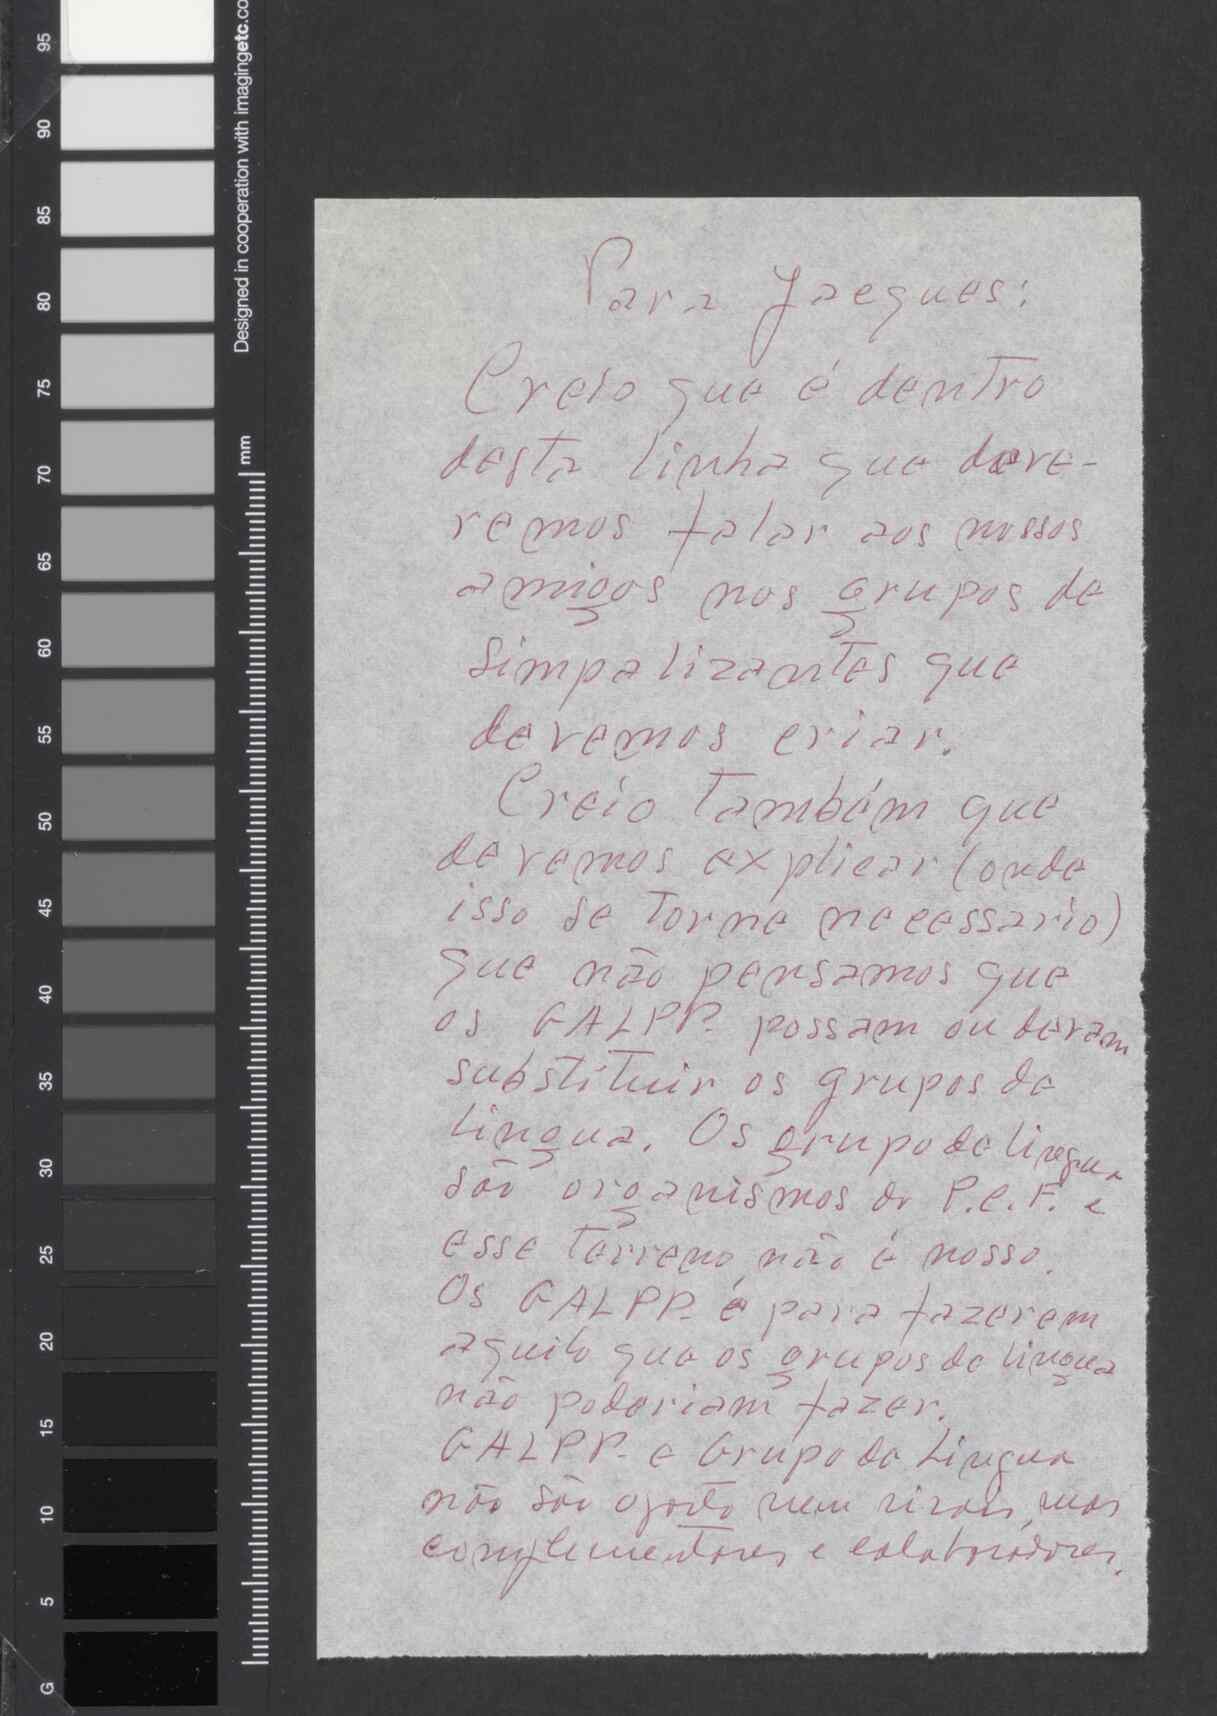 95
90
85
80
75
70
65
60
55
50
45
40
35
30
25
20
15
10
5
G
Designed in cooperation with imagingetc.co
mm
Para Jacques:
Creio que é dentro
desta linha que deve-
remos falar aos nossos
amigos nos grupos de
simpatizantes que
devemos criar.
Creio também que
devemos explicar (onde
isso se torne necessario)
que não pensamos que
os GALPP. possam ou devam
substituir os grupos de
lingua. Os grupo de lingua
são organismos do P.C.F. e
esse terreno não é nosso.
Os GALPP. é para fazerem
aquilo que os grupos de lingua
não poderiam fazer.
GALPP. e Grupo de Lingua
não são nem rivais, mas
complementares e colaboradores.